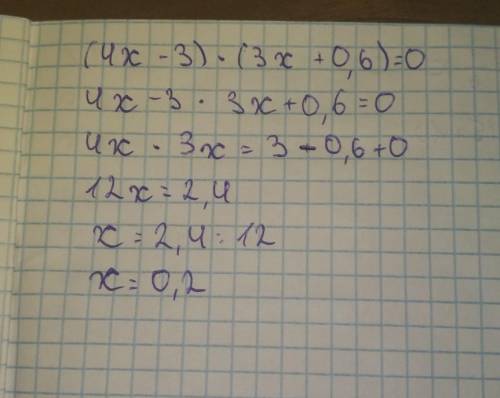 (4x - 3) · (3x + 0,6) = 0
4x - 3 · 3x + 0,6 = 0
4x · 3x = 3 - 0,6 + 0
12x = 2,4
x = 2,4 : 12
x = 0,2